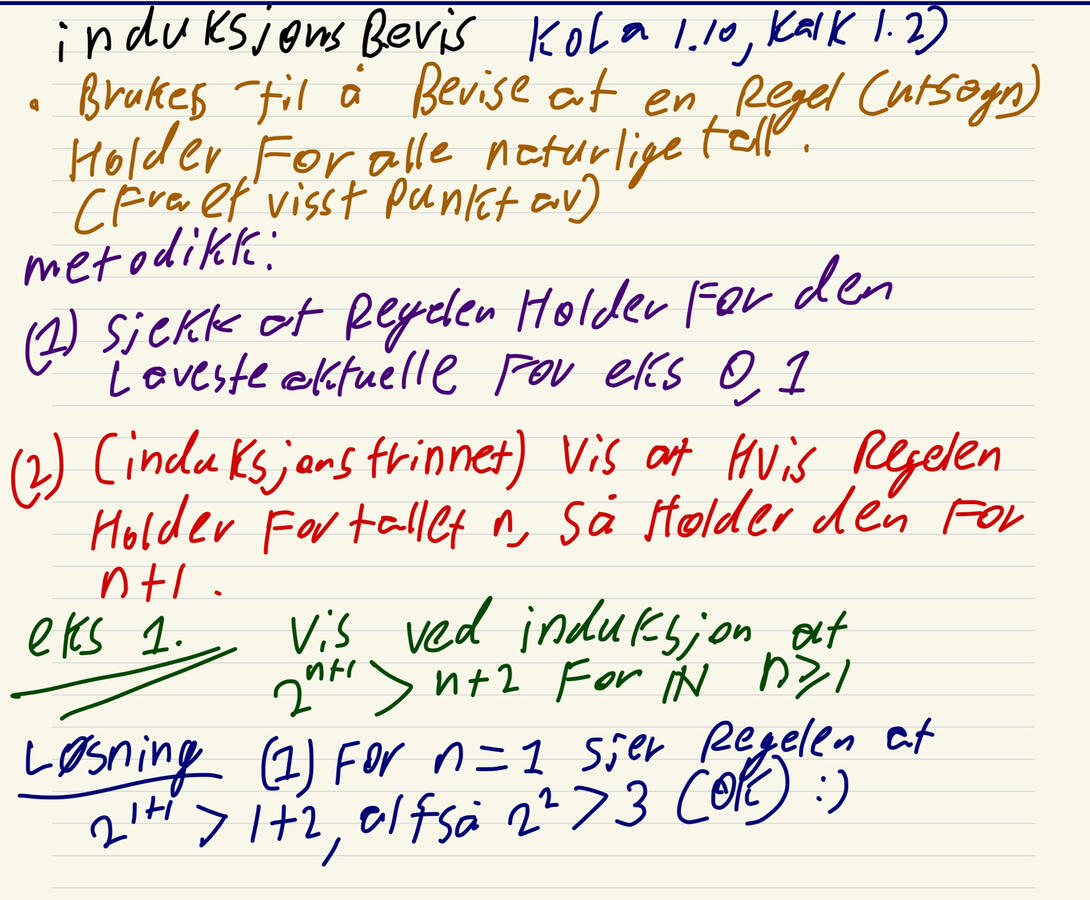 induksjons Bevis Kola 1.10, Kalk 1.2)
• Brukes til å Bevise at en Regel (utsagn)
Holder For alle naturlige tall.
(Fra et visst Punkt av)
metodikk:
(1) sjekk at Regelen Holder For den
Laveste aktuelle For eks 0, 1
(2) (induksjonstrinnet) Vis at Hvis Regelen
Holder For tallet n, så Holder den For
n+1.
eks 1. Vis ved induksjon at
2ⁿ⁺¹ > n+2 For ℕ n≥1
Løsning (1) For n=1 sier Regelen at
2¹⁺¹ > 1+2, altså 2² > 3 (OK) :)